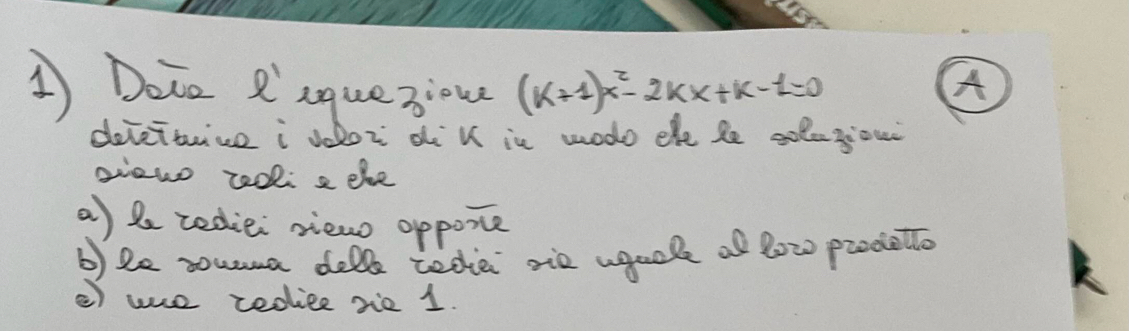 1) Data l'equazione (K+1)x²-2Kx+K-1=0 A
determina i valori di K in modo che le soluzioni
siano reali e che
a) le radici siano opposte
b) la somma delle radici sia uguale al loro prodotto
c) una radice sia 1.